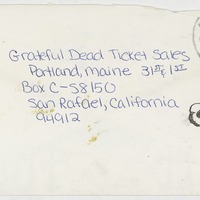 Grateful Dead Ticket Sales
Portland, maine 31st & 1st
Box C-S8150
San Rafael, California
94912